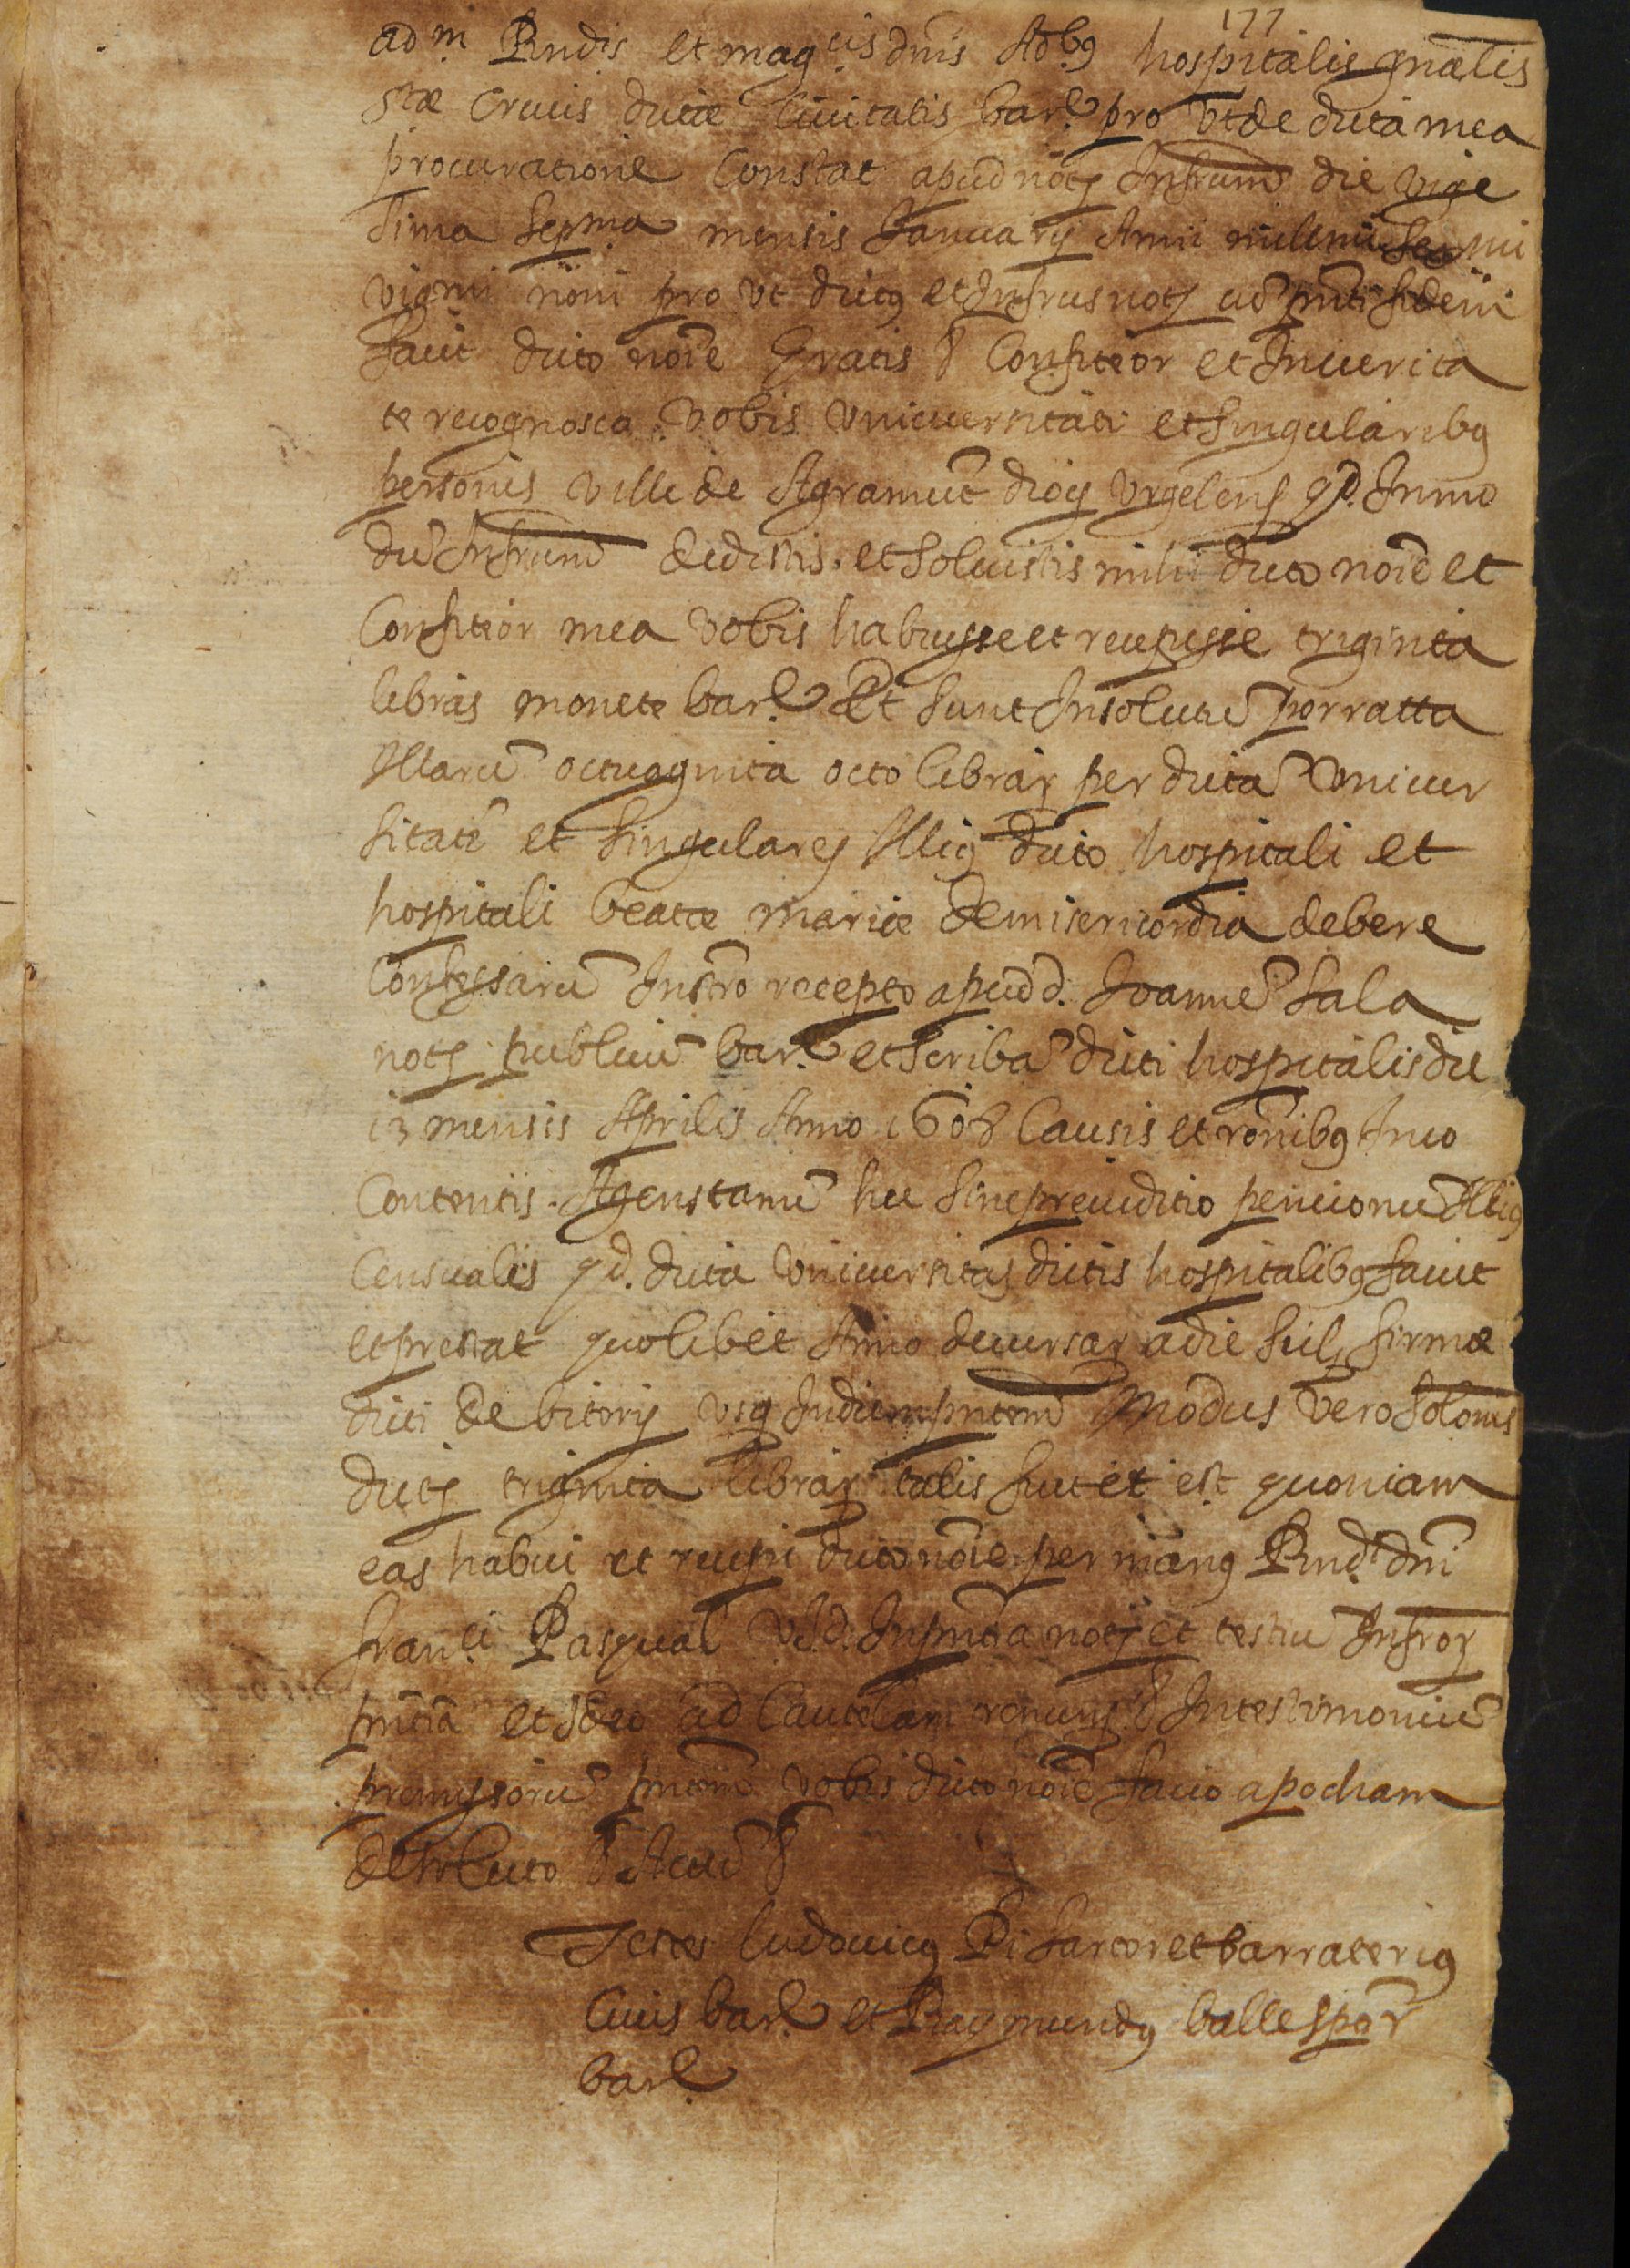 177
ad.m Rndis et mag.cis dnis Adb9 hospitalis gnalis
stæ Crucis dictæ Ciuitatis bar. pro vt de dicta mea
procuratione Constat apud notm Infrum die vige
sima sepma mensis Januarij Anni millmi
vigmi noni pro vt dictus et Infrus nots
facit dicto noie Gratis & Confiteor et In verita
te recognosco vobis vniuersitati et singularib9
personis ville de Agramut diocs Vrgelens qd. In mo
du Infrum dedistis et soluistis mihi dicto noie et
Confiteor me a vobis habuysse et recepisse triginta
libras monete bar. Et sunt In solutu porratta
Illaru octuaginta octo librar per dicta vniuer
sitate et singulares Illi9 dicto hospitali et
hospitali beatæ mariæ de misericordia debere
Confessaru Instro recepto apud d. Joanne Sala
nots publicu bar. et scriba dicti hospitalis die
13 mensis Aprilis Anno 1608 Causis et ronib9 In eo
Contentis. Agens tame hec sine preiuditio pencionu Illi9
Censualis qd. dicta vniuersitas dictis hospitalib9 facit
et prestat quolibet Anno decursar a die firmæ
dicti debitorij vsq In diem pntem Modus vero solonis
dicts triginta librar talis fuit et est quoniam
eas habui et recepi dicto noie per man9 Rnd. dni
Franci Pasqual V.J.d. In pntia nots et testiu Infror
pntia et Ideo ad Cautelam renuns & In testimoniu
premyssoru pntem vobis dicto noie facio apocham
de soluto & Actu &
Testes ludouic9 Pi sartor et barraterius
Ciuis bar. et Raymund9 balle
bar.